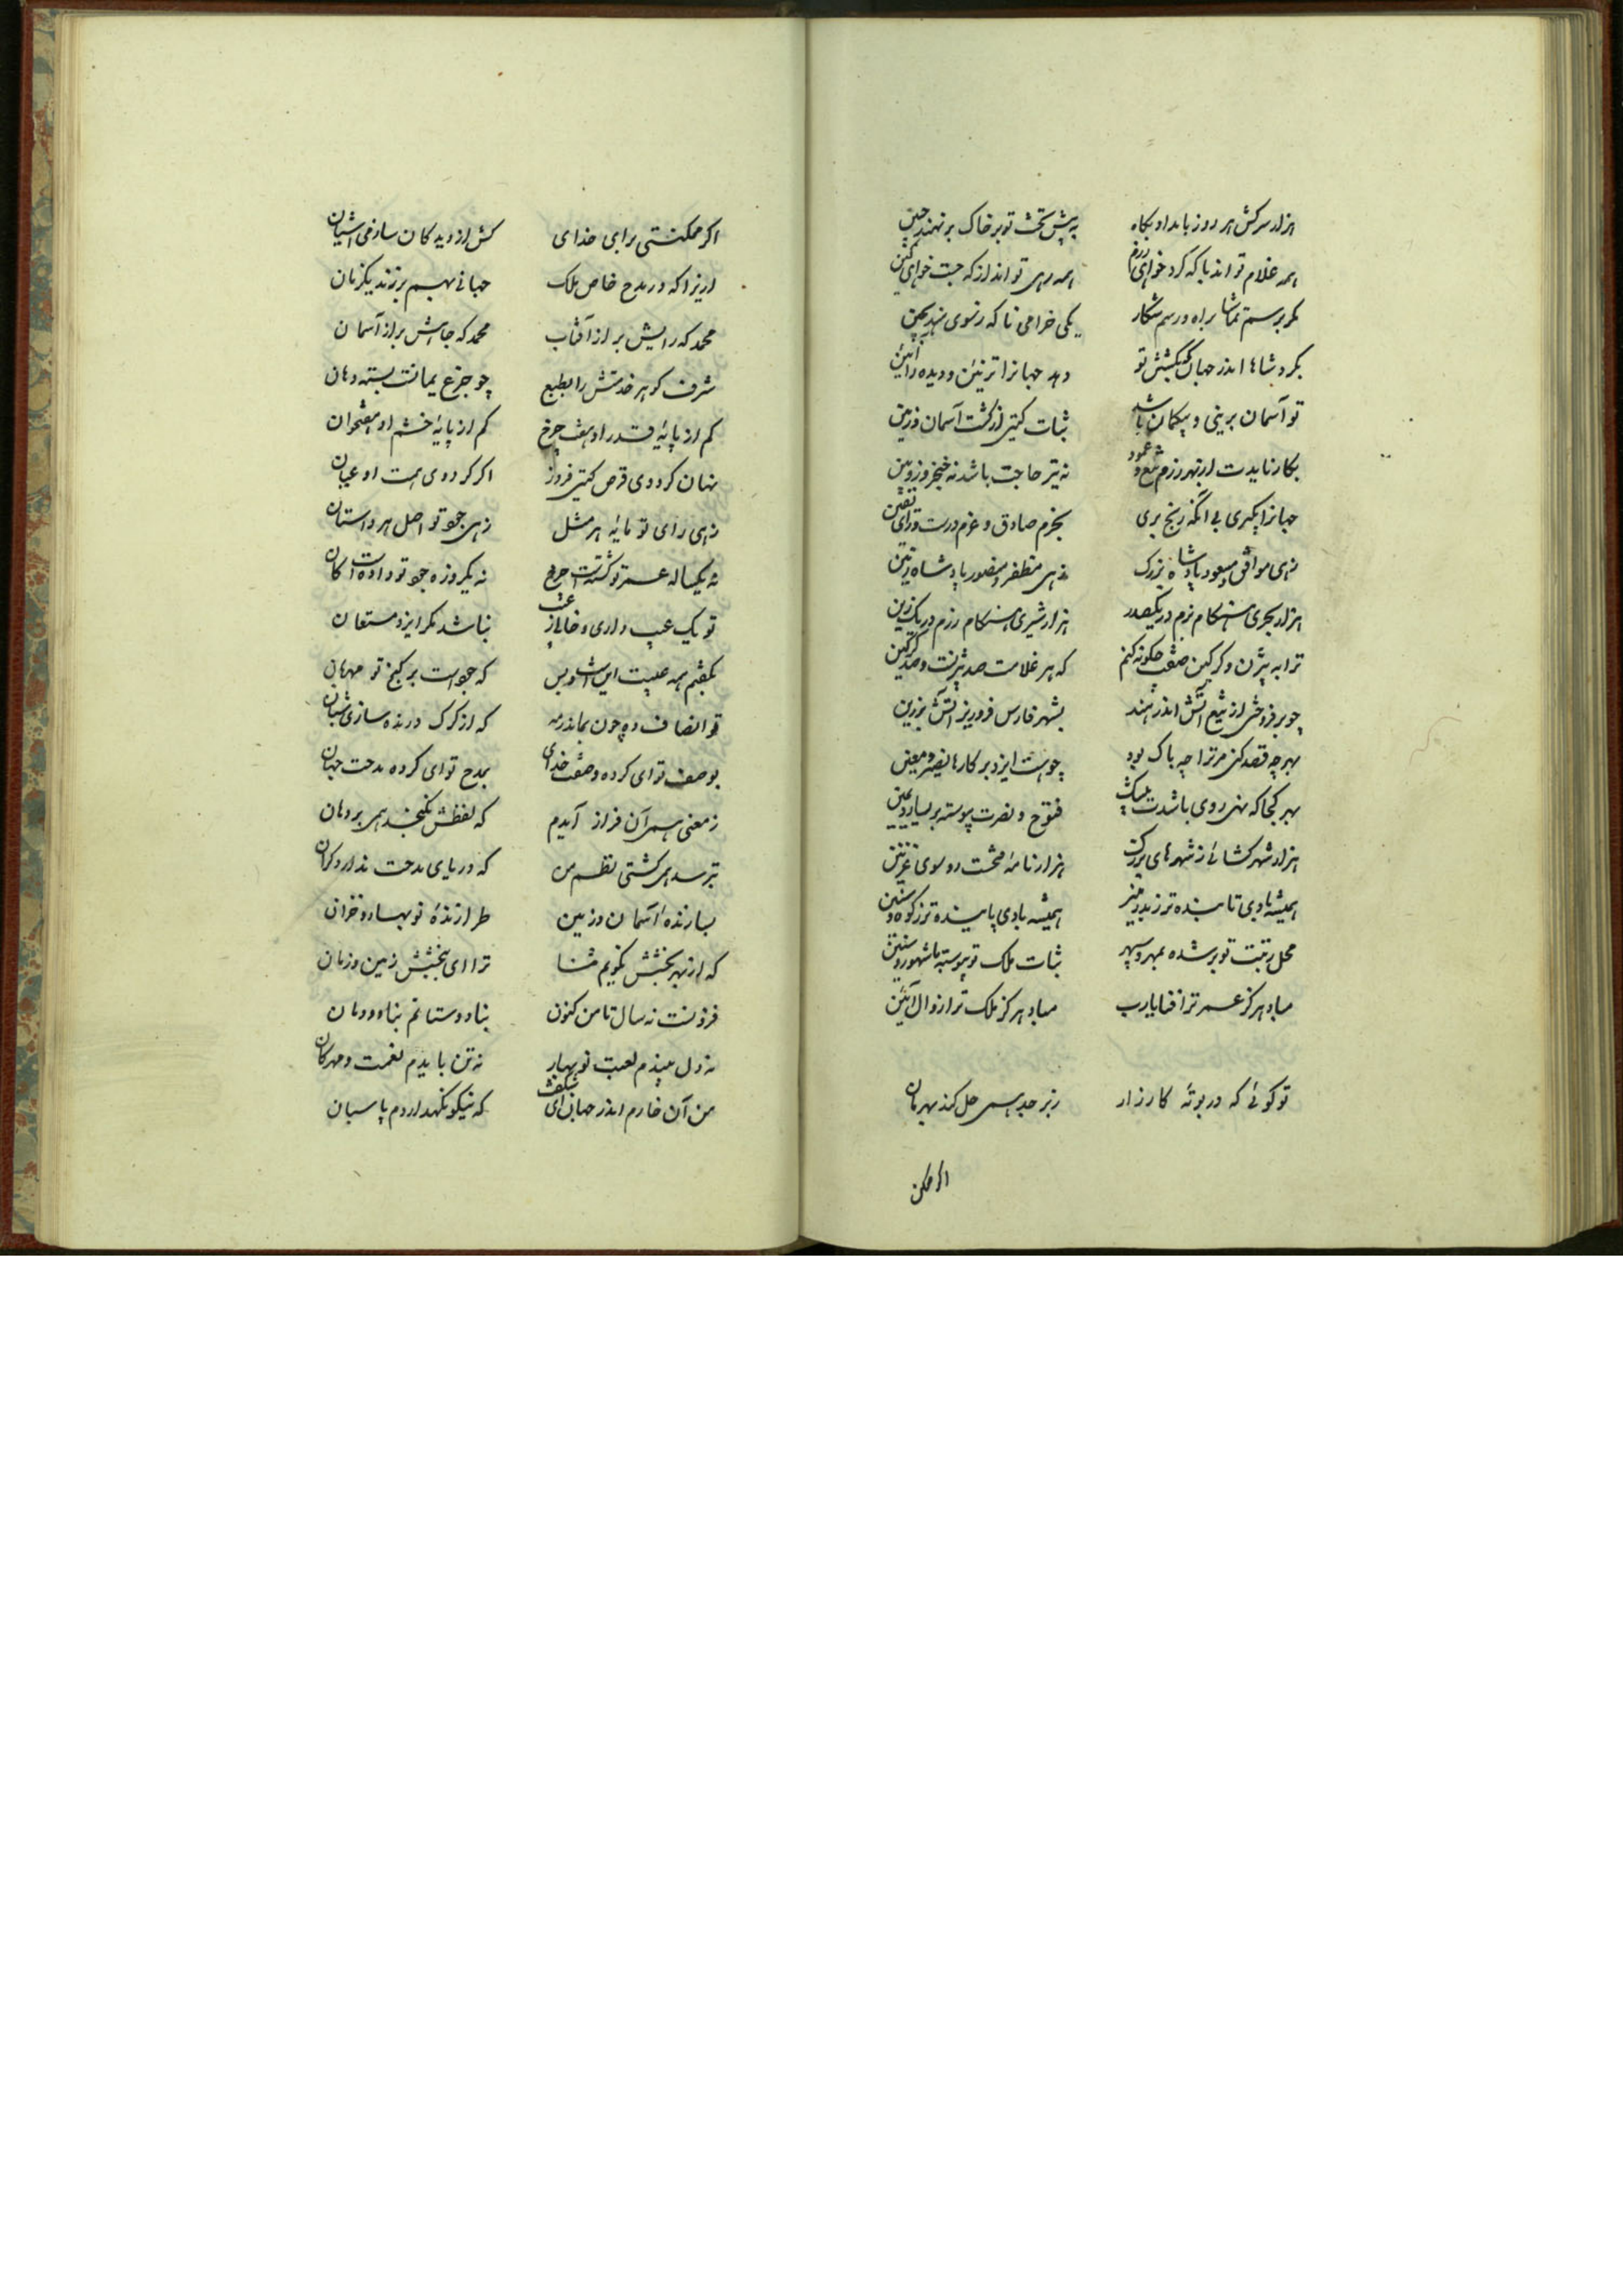 هزار سرکش هر روز بامداد پکاه به پیش تخت تو بر خاک بر نهند جبین
همه غلام تواند با که کرد خواهی رزم همه رهی تواند از که جست خواهی کین
مگر برسم تماشا براه و رسم شکار یکی خرامی تا که ز سوی نهر
بگرد شاها اندر جهان که گشتن تو دهد جهانرا تزئین و دیده را آئین
تو آسمان برینی و بیکمان باشد ثبات گیتی از گشت آسمان و زمین
بکار نایدت از بهر رزم تیغ و عمود نه تیر حاجت باشد نه خنجر و زوبین
جهانرا بگیری بی آنکه رنج بری بحزم صادق و عزم درست و رای یقین
زهی موافق و مسعود پادشاه بزرگ زهی مظفر و منصور پادشاه رزین
هزار بحری هنگام بزم در یکصدر هزار شیری هنگام رزم در یک زین
ترا به بیژن و گرگین صفت چکونه کنم که هر غلامت صد بیژنست و صد گرگین
چو برفروختی از تیغ آتش اندر هند بشهر فارس فرو ریز آتش برزین
بهرچه قصد کنی مر ترا چه باک بود چو هست ایزد بر کارها نصیر و معین
بهر کجا که نهی روی باشدت بیشک فتوح و نصرت پیوسته بر یسار و یمین
هزار شهر گشائی ز شهرهای بزرگ هزار نامهٔ فتحت رود سوی غزنین
همیشه بادی تابنده تر ز بدر منیر همیشه بادی پاینده تر ز کوه
محل رتبت تو بر شده بمهر و سپهر ثبات ملک تو پیوسته با شهور و سنین
مباد هرگز عمر ترا فنا یارب مباد هرگز ملک ترا زوال آئین
تو گوئی که در بوتهٔ کارزار زبرجد همی حل کند بهرمان
اگر ممکن
اگر ممکنستی برای خدای کش از دیدگان سازمی آشیان
ازیرا که در مدح خاص ملک جهانی بهم برزند یکزمان
محمد که رایش بر از آفتاب محمد که جاهش بر از آسمان
شرف گوهر خدمتش را بطبع چو جزع یمانت بسته دهان
کم از پایهٔ قدر او هفت چرخ کم از پایهٔ خشم او هفتخوان
نهان کرددی قرص گیتی فروز اگر گرددی همت او عیان
زهی رای تو مایهٔ هر مثل زهی جود تو اصل هر داستان
نه یکساله عمر تو گشتست چرخ نه یکروزه جود تو دادست کان
تو یک عیب داری و خالی ز عیب نباشد مگر ایزد مستعان
بگفتم همه عیبت اینست و بس که جودست بر گنج تو مهمان
تو انصاف ده چون بماند رمه که از گرگ درنده سازی شبان
بوصف تو ای کرده وصفت خدای بمدح تو ای کرده مدحت جهان
ز معنی همی آن فراز آیدم که لفظش نگنجد همی بر دهان
بترسد همی کشتی نظم من که دریای مدحت ندارد کران
بسازندهٔ آسمان و زمین طرازندهٔ نوبهار و خزان
که از بهر بخشش نگویم ثنا ترا ای ببخشش زمین و زمان
فزونست نه سال تا من کنون بنا دوستانم بنا دودمان
نه دل بیندم لعبت نوبهار نه تن بایدم نعمت و مهرگان
من آن خارم اندر جهان ای شگفت که نیکو نگهداردم پاسبان